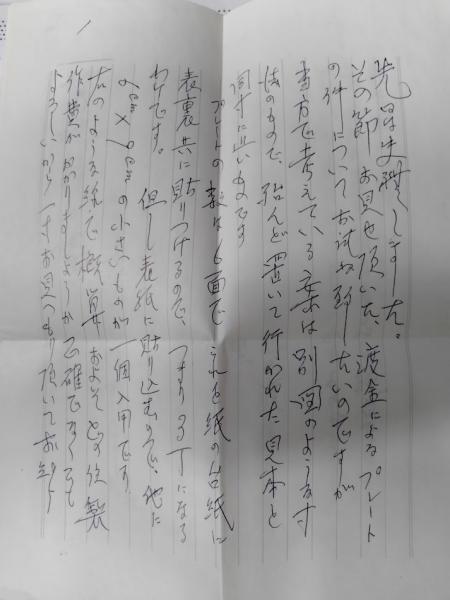 先日は失礼しました。
その節お見せ頂いた、渡金によるプレート
の件についてお試ね致したいのですが
当方で考えている案は別図のような寸
法のもので、殆んど置いて行かれた見本と
同寸に近いものです
プレートの数は6面で これを紙の台紙に
表裏共に貼りつけるので、つまり3丁になる
わけです。但し表紙に貼り込むので、他に
6cm×9cmの小さいものが一個入用です
右のような線で概算 およそどの位製
作費がかかりましょうか 正確でなくても
よろしいから一寸お見つもり頂いて
1